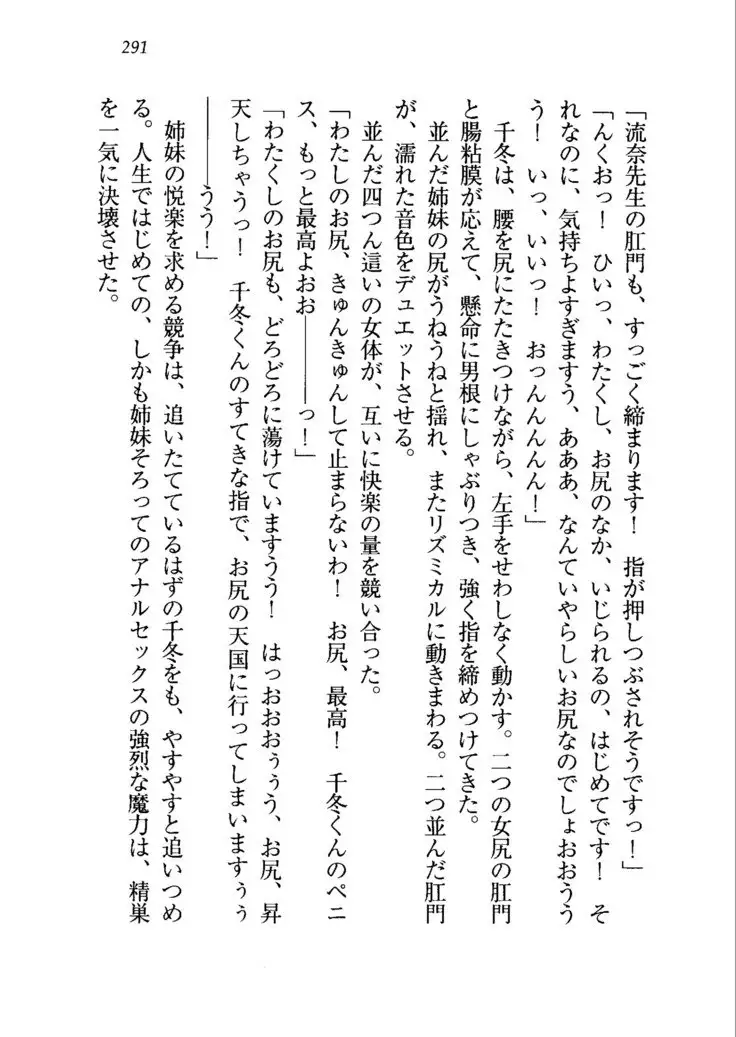 291
「流奈先生の肛門も、すっごく締まります！　指が押しつぶされそうですっ！」
「んくおっ！　ひいっ、わたくし、お尻のなか、いじられるの、はじめてです！　そ
れなのに、気持ちよすぎますう、あああ、なんていやらしいお尻なのでしょおおうう
う！　いっ、いいっ！　おっんんんんん！」
千冬は、腰を尻にたたきつけながら、左手をせわしなく動かす。二つの女尻の肛門
と腸粘膜が応えて、懸命に男根にしゃぶりつき、強く指を締めつけてきた。
並んだ姉妹の尻がうねうねと揺れ、またリズミカルに動きまわる。二つ並んだ肛門
が、濡れた音色をデュエットさせる。
並んだ四つん這いの女体が、互いに快楽の量を競い合った。
「わたしのお尻、きゅんきゅんして止まらないわ！　お尻、最高！　千冬くんのペニ
ス、もっと最高よおお――――っ！」
「わたくしのお尻も、どろどろに蕩けていますうう！　はっおおおぅぅう、お尻、昇
天しちゃうっ！　千冬くんのすてきな指で、お尻の天国に行ってしまいますぅぅ
――――うう！」
姉妹の悦楽を求める競争は、追いたてているはずの千冬をも、やすやすと追いつめ
る。人生ではじめての、しかも姉妹そろってのアナルセックスの強烈な魔力は、精巣
を一気に決壊させた。